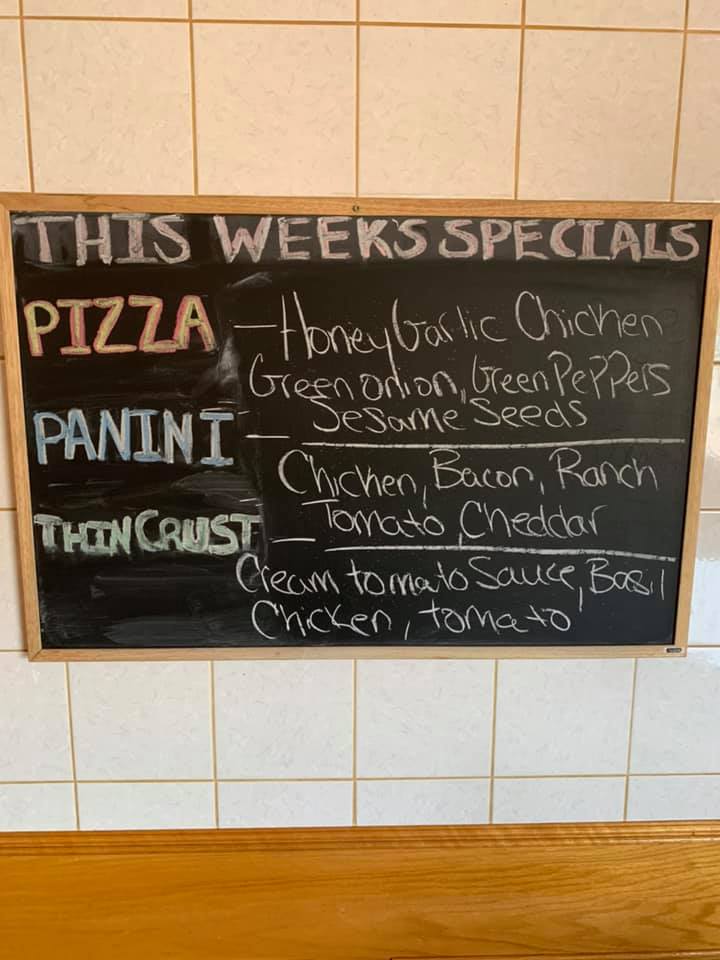 THIS WEEK'S SPECIALS
PIZZA - Honey Garlic Chicken
Green onion, Green Peppers
Sesame Seeds
PANINI -
Chicken, Bacon, Ranch
Tomato, Cheddar
THIN CRUST -
Cream tomato Sauce, Basil
Chicken, tomato